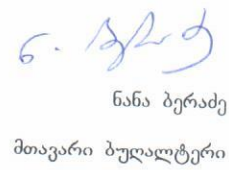 ნანა ბერაძე
მთავარი ბუღალტერი